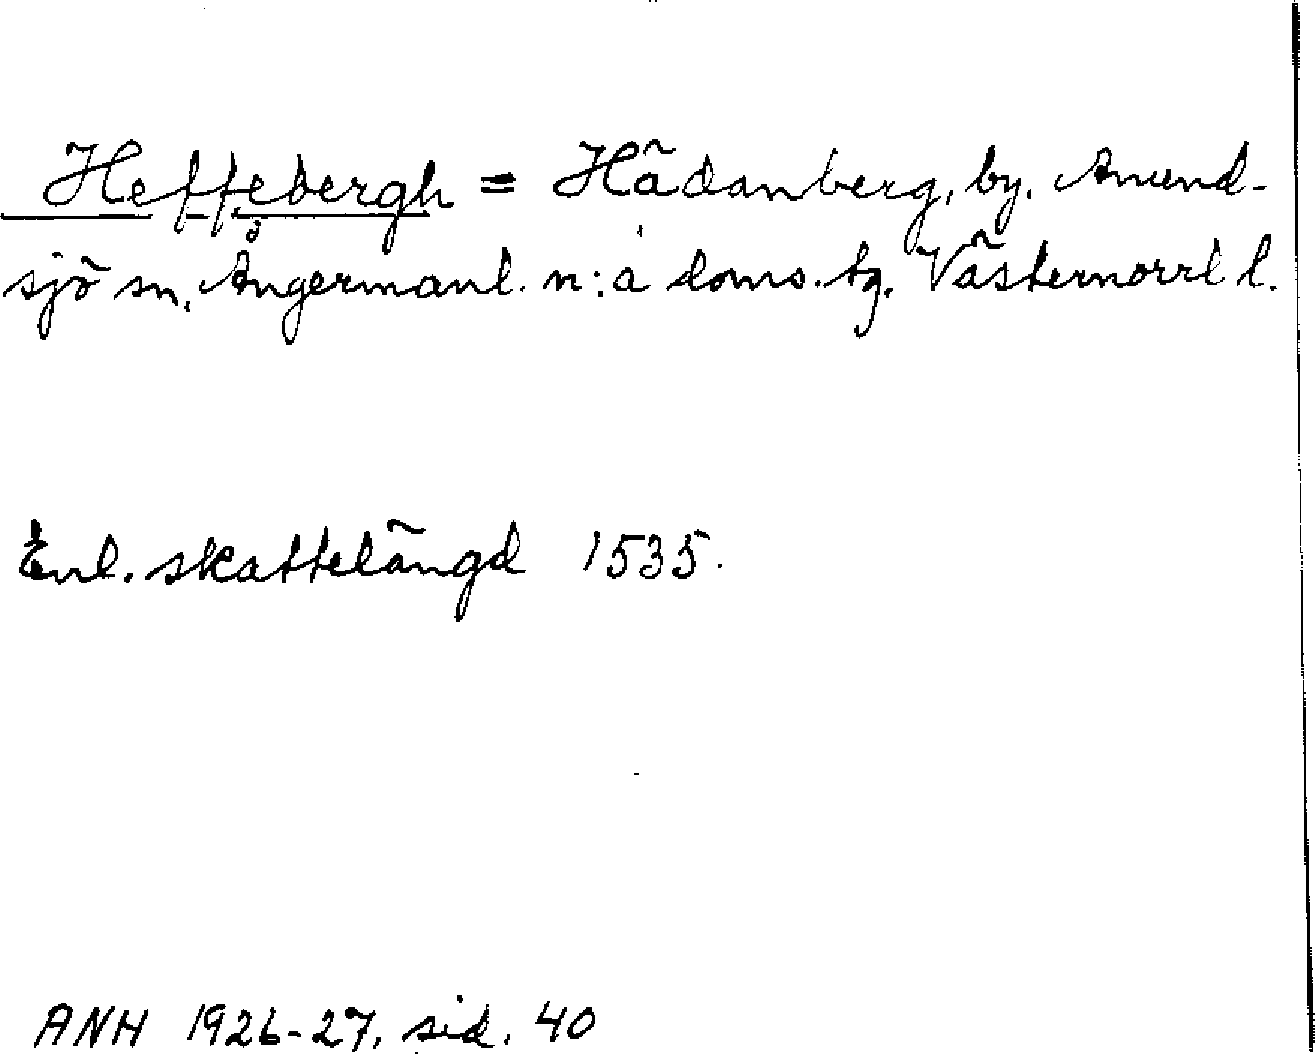 Heffebergh = Hädanberg, by. Anund-
sjö sn. Ångermanl. n:a doms. tg. Västernorrl l.
Enl. skattelängd 1535.
ANH 1926-27, sid. 40